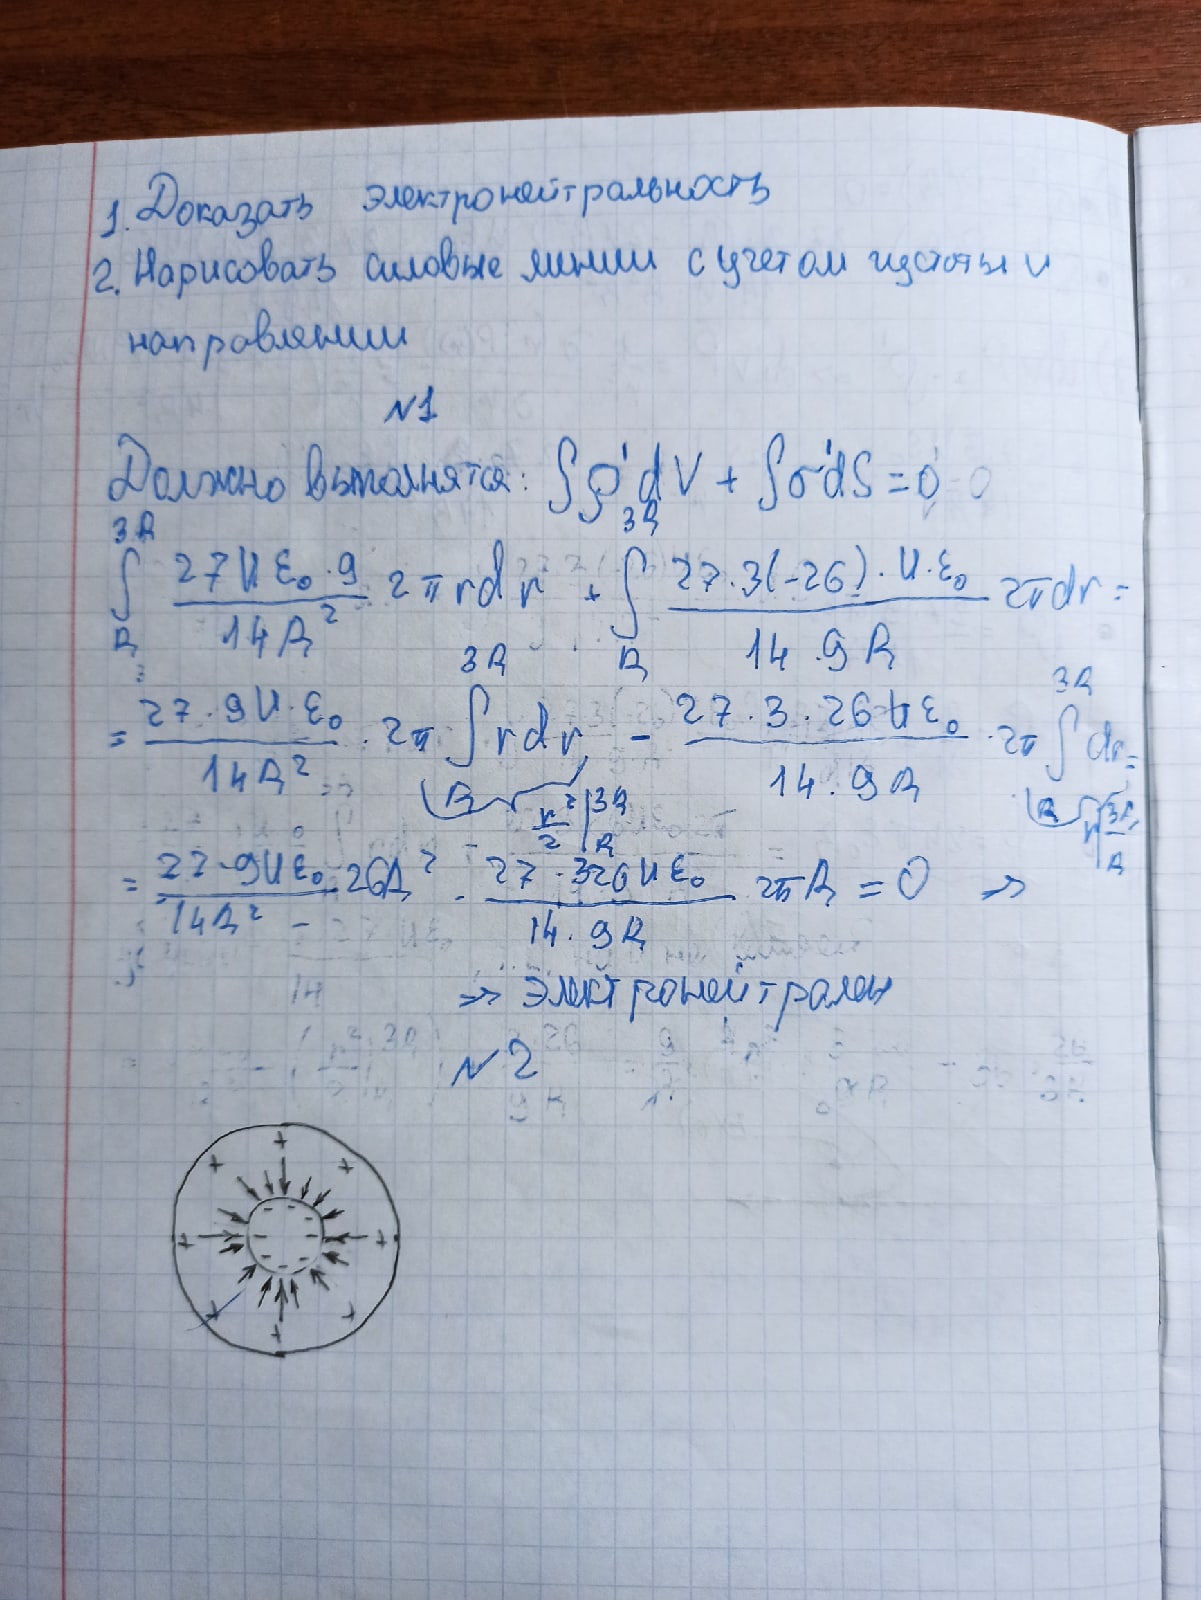 1. Доказать электронейтральность
2. Нарисовать силовые линии с учетом густоты и
направлении
N1
Должно выполнятся: ∫ρ'dV + ∫σ'dS = 0
∫_R^{3R} (27Uε₀·9)/(14R²) 2πrdr + ∫_R^{3R} (27·3(-26)·U·ε₀)/(14·9R) 2πdr =
= (27·9U·ε₀)/(14R²) · 2π ∫_R^{3R} rdr - (27·3·26Uε₀)/(14·9R) · 2π ∫_R^{3R} dr =
r²/2 |_R^{3R} r|_R^{3R}
= (27·9Uε₀)/(14R²) 26R² - (27·326Uε₀)/(14·9R) 2πR = 0 ⇒
⇒ электронейтрален
N2